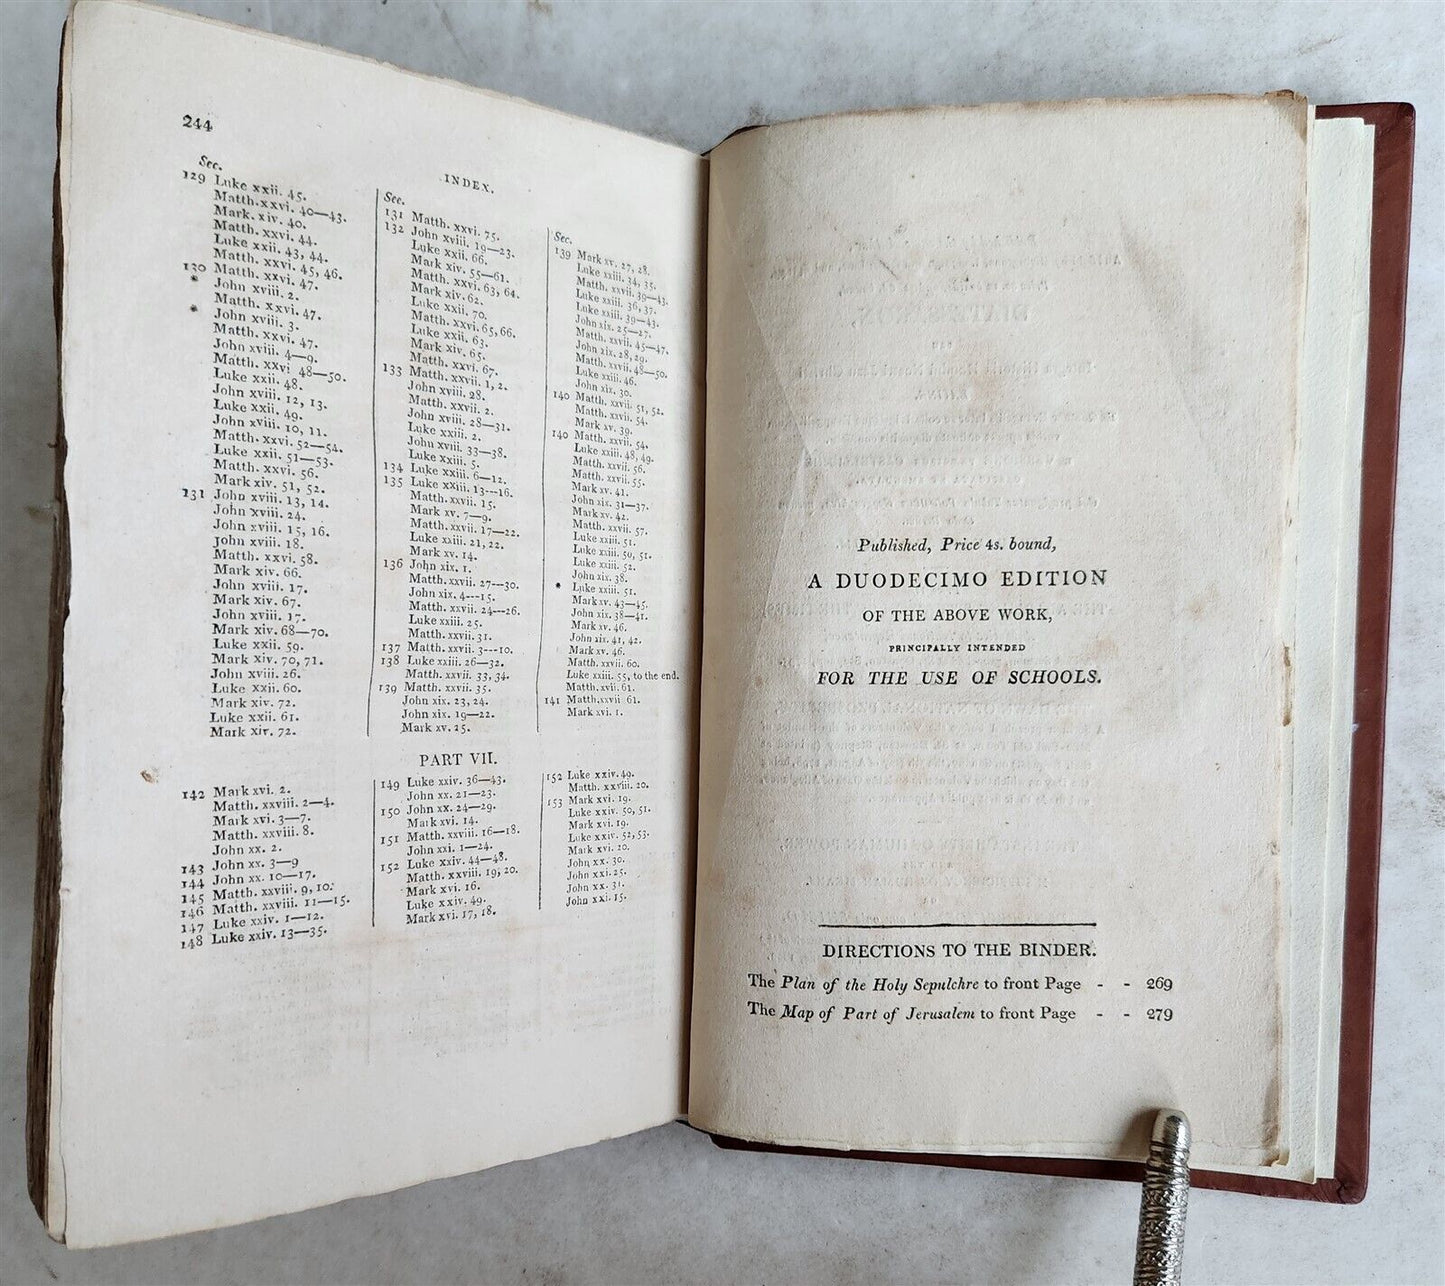 244
INDEX.
Sec.
129 Luke xxii. 45.
Matth. xxvi. 40—43.
Mark. xiv. 40.
Matth. xxvi. 44.
Luke xxii. 43, 44.
Matth. xxvi. 45, 46.
130 Matth. xxvi. 47.
* John xviii. 2.
Matth. xxvi. 47.
* John xviii. 3.
Matth. xxvi. 47.
John xviii. 4—9.
Matth. xxvi 48—50.
Luke xxii. 48.
John xviii. 12, 13.
Luke xxii. 49.
John xviii. 10, 11.
Matth. xxvi. 52—54.
Luke xxii. 51—53.
Matth. xxvi. 56.
Mark xiv. 51, 52.
131 John xviii. 13, 14.
John xviii. 24.
John xviii. 15, 16.
John xviii. 18.
Matth. xxvi. 58.
Mark xiv. 66.
John xviii. 17.
Mark xiv. 67.
John xviii. 17.
Mark xiv. 68—70.
Luke xxii. 59.
Mark xiv. 70, 71.
John xviii. 26.
Luke xxii. 60.
Mark xiv. 72.
Luke xxii. 61.
Mark xiv. 72.
Sec.
131 Matth. xxvi. 75.
132 John xviii. 19—23.
Luke xxii. 66.
Mark xiv. 55—61.
Matth. xxvi. 63, 64.
Mark xiv. 62.
Luke xxii. 70.
Matth. xxvi. 65, 66.
Luke xxii. 63.
Mark xiv. 65.
Matth. xxvi. 67.
133 Matth. xxvii. 1, 2.
John xviii. 28.
Matth. xxvii. 2.
John xviii. 28—31.
Luke xxiii. 2.
John xviii. 33—38.
Luke xxiii. 5.
134 Luke xxiii. 6—12.
135 Luke xxiii. 13---16.
Matth. xxvii. 15.
Mark xv. 7—9.
Matth. xxvii. 17—22.
Luke xxiii. 21, 22.
Mark xv. 14.
136 John xix. 1.
Matth. xxvii. 27---30.
John xix. 4---15.
Matth. xxvii. 24—26.
Luke xxiii. 25.
Matth. xxvii. 31.
137 Matth. xxvii. 3---10.
138 Luke xxiii. 26—32.
Matth. xxvii. 33, 34.
139 Matth. xxvii. 35.
John xix. 23, 24.
John xix. 19—22.
Mark xv. 25.
Sec.
139 Mark xv. 27, 28.
Luke xxiii. 34, 35.
Matth. xxvii. 39—43.
Luke xxiii. 36, 37.
Luke xxiii. 39—43.
John xix. 25—27.
Matth. xxvii. 45—47.
John xix. 28, 29.
Matth. xxvii. 48—50.
Luke xxiii. 46.
John xix. 30.
140 Matth. xxvii. 51, 52.
Matth. xxvii. 54.
Mark xv. 39.
140 Matth. xxvii. 54.
Luke xxiii. 48, 49.
Matth. xxvii. 56.
Matth. xxvii. 55.
Mark xv. 41.
John xix. 31—37.
Mark xv. 42.
Matth. xxvii. 57.
Luke xxiii. 51.
Luke xxiii. 50, 51.
Luke xxiii. 52.
John xix. 38.
* Luke xxiii. 51.
Mark xv. 43—45.
John xix. 38—41.
Mark xv. 46.
John xix. 41, 42.
Mark xv. 46.
Matth. xxvii. 60.
Luke xxiii. 55, to the end.
Matth. xvii. 61.
141 Matth. xxvii 61.
Mark xvi. 1.
PART VII.
142 Mark xvi. 2.
Matth. xxviii. 2—4.
Mark xvi. 3—7.
Matth. xxviii. 8.
John xx. 2.
143 John xx. 3—9
144 John xx. 10—17.
145 Matth. xxviii. 9, 10.
146 Matth. xxviii. 11—15.
147 Luke xxiv. 1—12.
148 Luke xxiv. 13—35.
149 Luke xxiv. 36—43.
John xx. 21—23.
150 John xx. 24—29.
Mark xvi. 14.
151 Matth. xxviii. 16—18.
John xxi. 1—24.
152 Luke xxiv. 44—48.
Matth. xxviii. 19, 20.
Mark xvi. 16.
Luke xxiv. 49.
Mark xvi. 17, 18.
152 Luke xxiv. 49.
Matth. xxviii. 20.
153 Mark xvi. 19.
Luke xxiv. 50, 51.
Mark xvi. 19.
Luke xxiv. 52, 53.
Mark xvi. 20.
John xx. 30.
John xxi. 25.
John xx. 31.
John xxi. 15.
Published, Price 4s. bound,
A DUODECIMO EDITION
OF THE ABOVE WORK,
PRINCIPALLY INTENDED
FOR THE USE OF SCHOOLS.
DIRECTIONS TO THE BINDER.
The Plan of the Holy Sepulchre to front Page - - 269
The Map of Part of Jerusalem to front Page - - 279